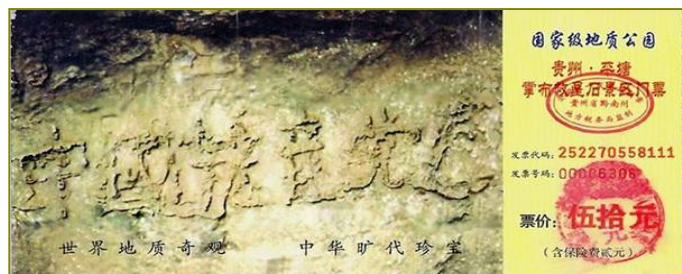 中国共产党亡
世界地质奇观 中华旷代珍宝
国家级地质公园
贵州·平塘
掌布藏字石景区门票
贵州省黔南州
地方税务局监制
发票代码：252270558111
发票号码：00006306
票价：伍拾元
（含保险费贰元）